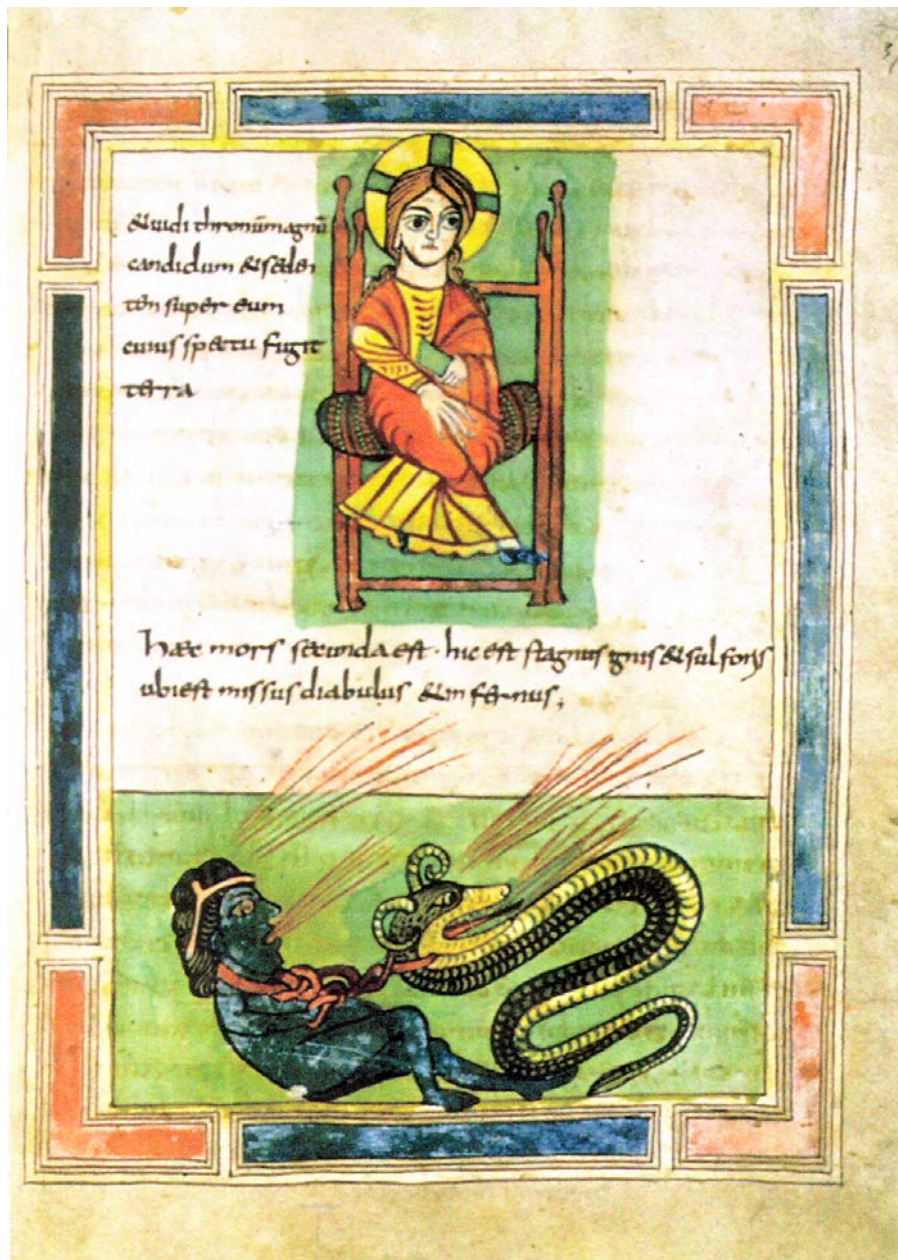 &uidi thronū magnū
candidum & seden
tēn super eum
cuius spectu fugit
terra
haec mors secunda est · hic est stagnus ignis & sulforis
ubi est missus diabulus & infernus ;